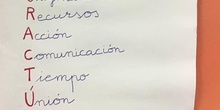 Recursos
Acción
Comunicación
Tiempo
Unión